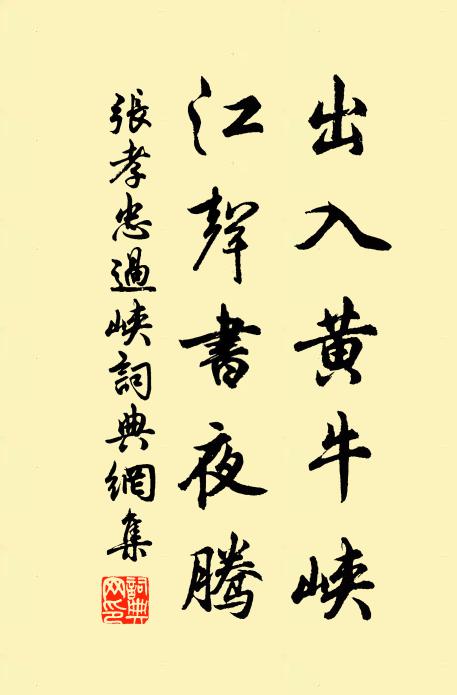 出入黄牛峽
江聲書夜騰
張孝忠過峽詞典網集
詞典
网印